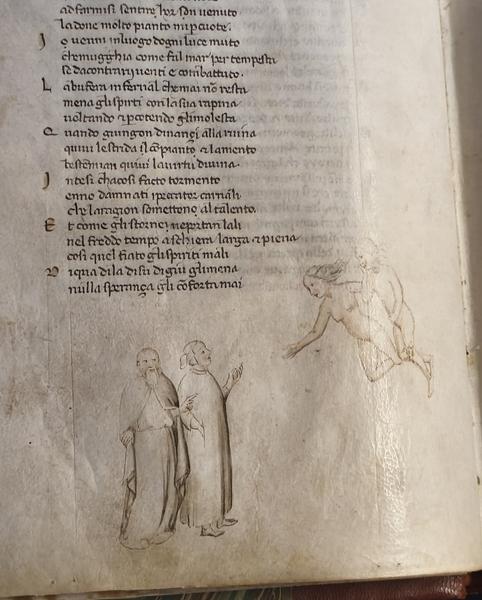 ad farmisi sentire hor son venuto
la done molto pianto mi pcuote.
I o venni inluogo dogni luce muto
che mugghia come fa il mar per tempesta
se da contrarij uenti e combattuto.
L a bufera infernal che mai no resta
mena gli spirti con la sua rapina
uoltando & pcotendo gli molesta
Q uando giungon dinançi alla ruina
quiui le strida il cõpianto & lamento
bestemian quiui la uirtu diuina.
I ntesi cha cosi facto tormento
enno dannati i peccator carnali
che la ragion somettono al talento.
E t come gli stornei ne portan lali
nel freddo tempo a schiera larga e piena
cosi quel fiato gli spiriti mali
D iqua dila di su di giu gli mena
nulla sperança gli cõforta mai